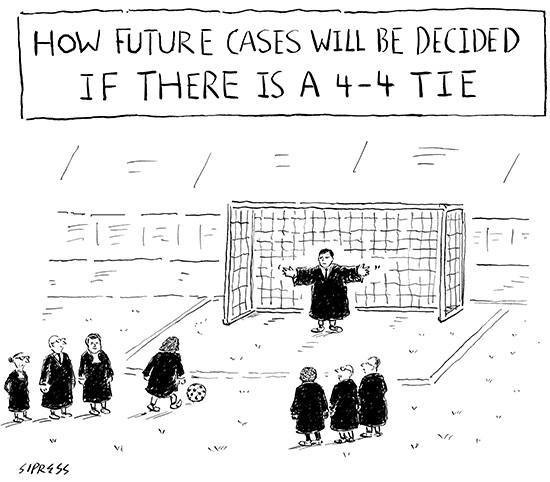 HOW FUTURE CASES WILL BE DECIDED
IF THERE IS A 4-4 TIE
SIPRESS